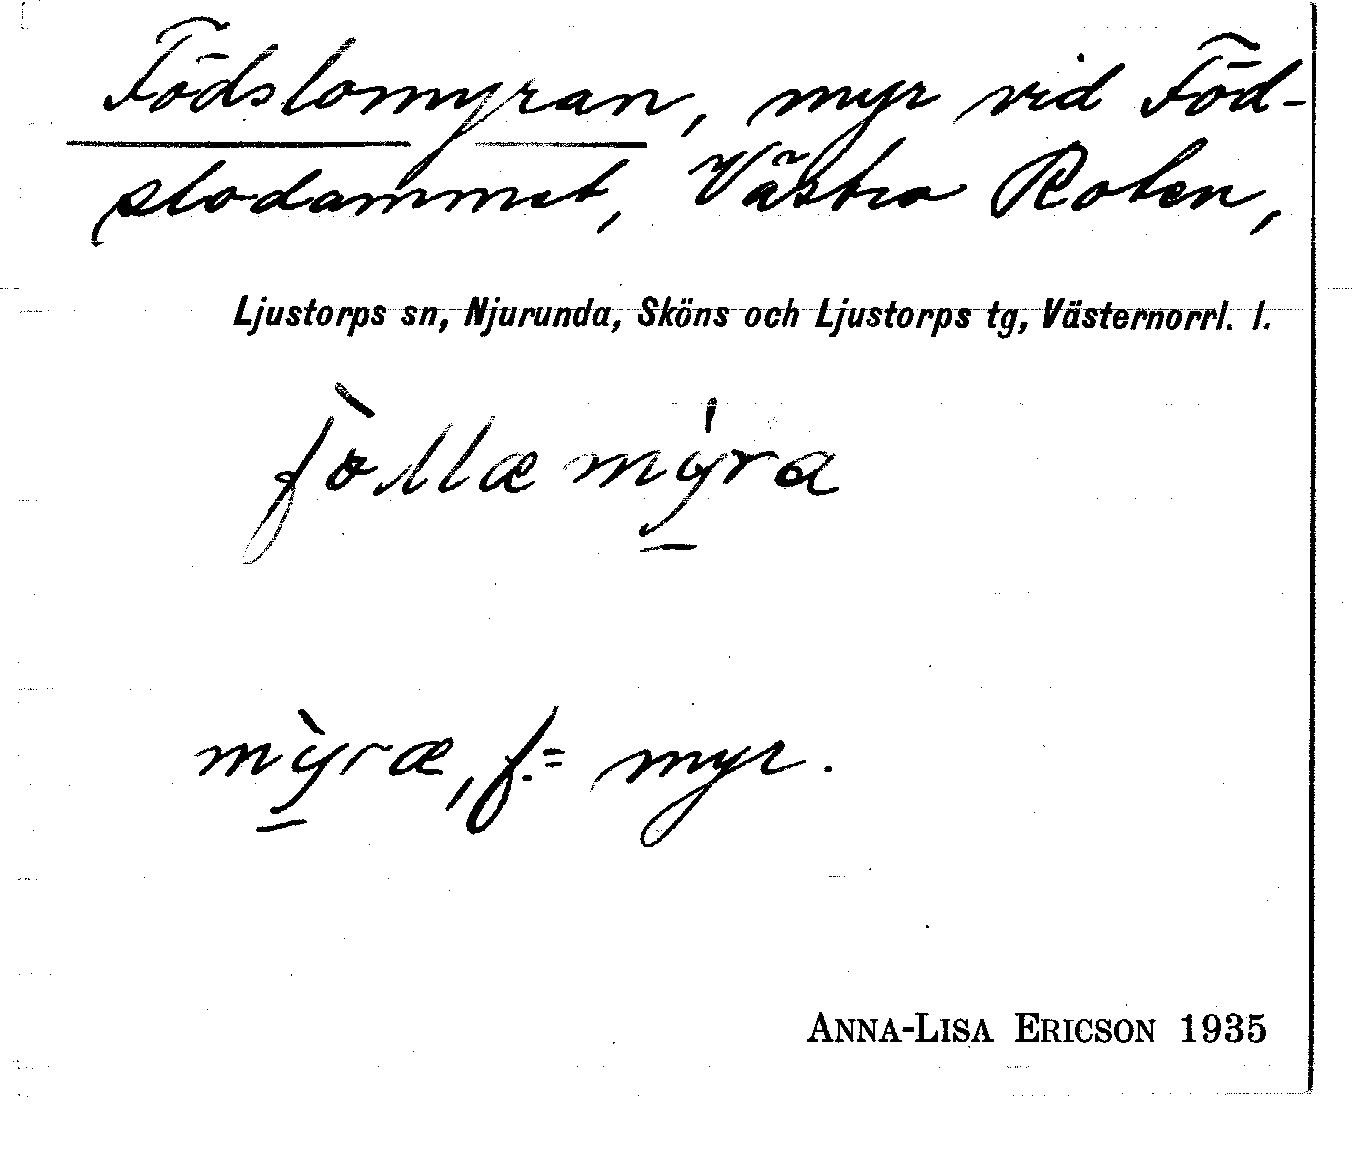 Födslomyran, myr vid Föd-
slodammet, Västra Roten,
Ljustorps sn, Njurunda, Sköns och Ljustorps tg, Västernorrl. l.
fòllæmýra
mỳræ, f. = myr.
ANNA-LISA ERICSON 1935